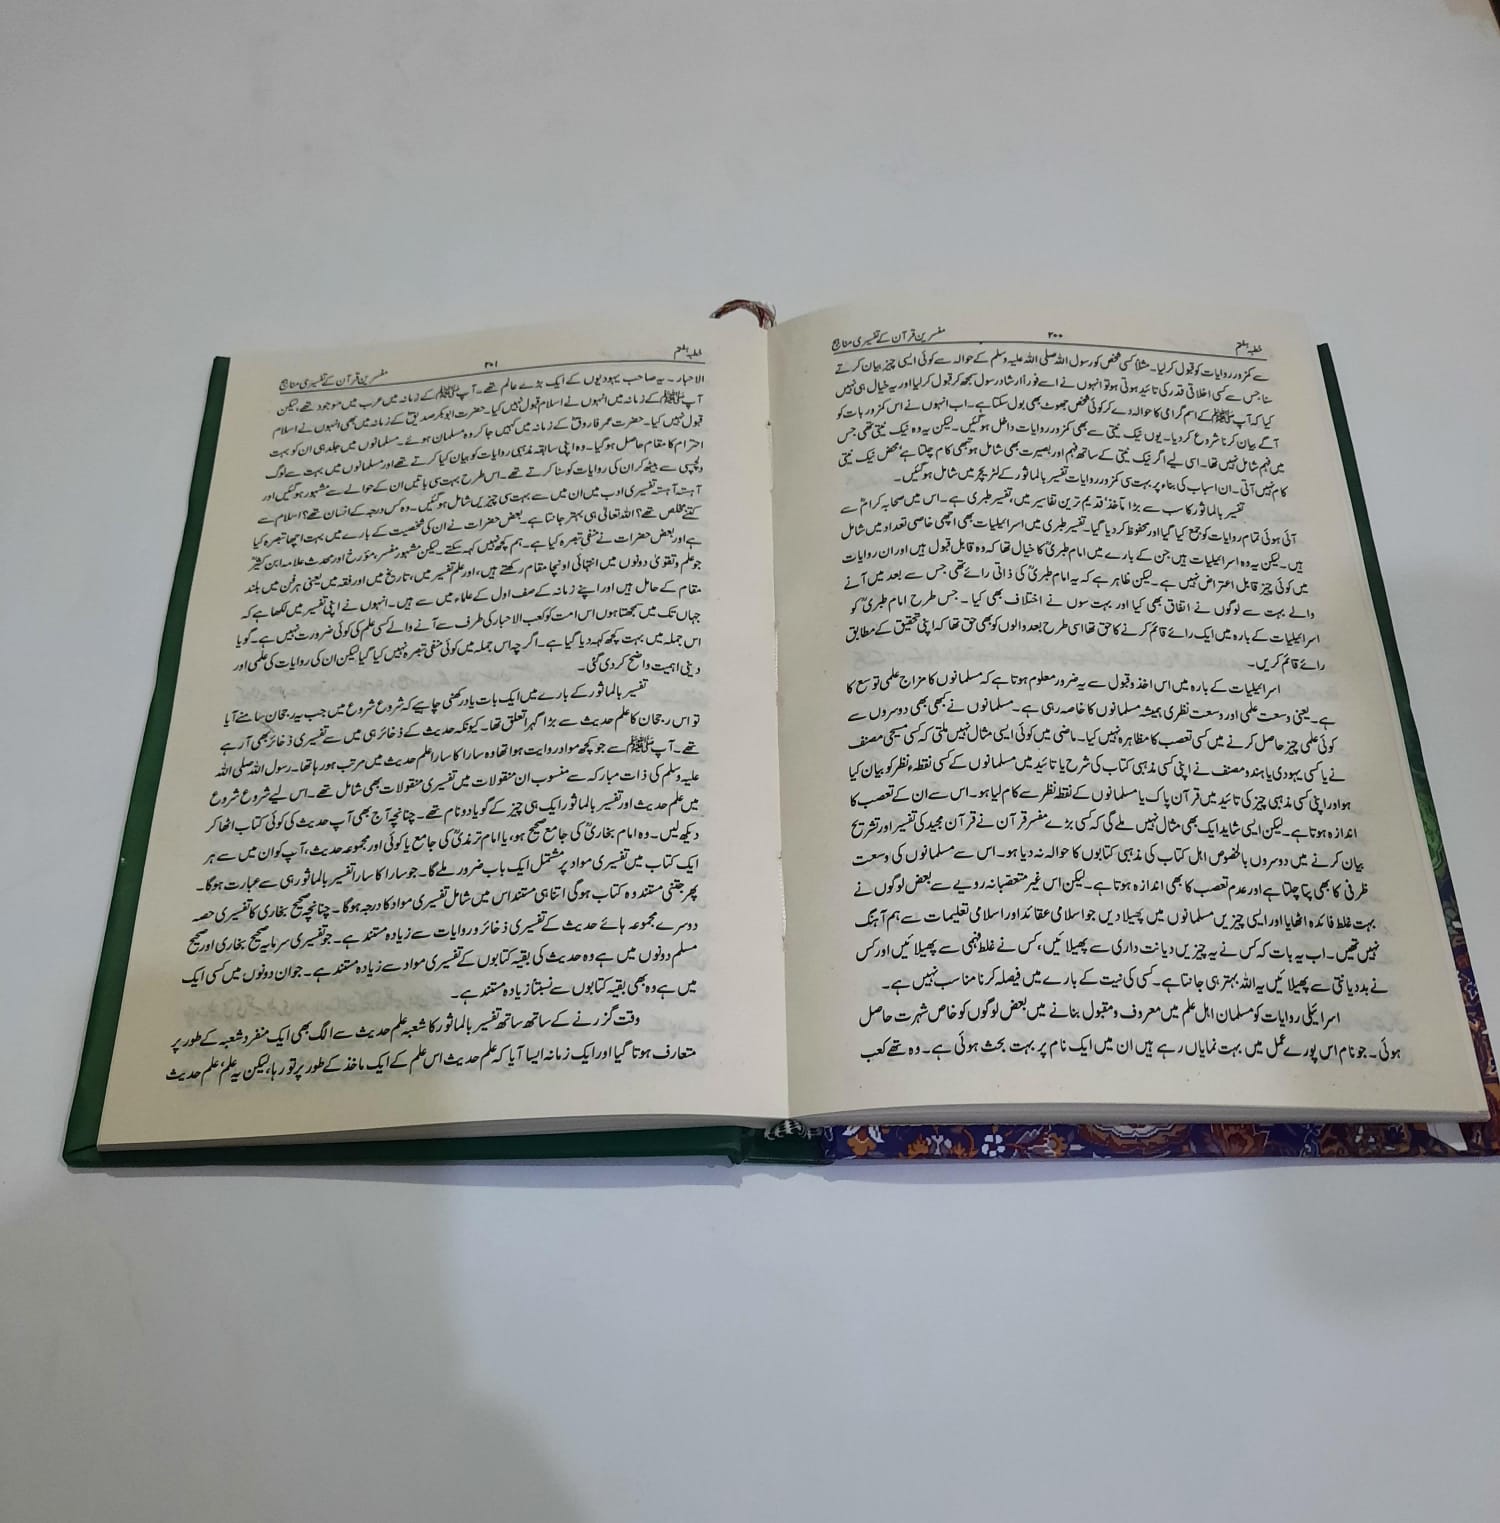 خطبہ ہفتم
۲۰۰
مفسرین قرآن کے تفسیری مناہج
سے کمزور روایات کو قبول کر لیا۔ مثلاً کسی شخص کو رسول اللہ صلی اللہ علیہ وسلم کے حوالہ سے کوئی ایسی چیز بیان کرتے
سنا جس سے کسی اخلاقی قدر کی تائید ہوتی ہو تو انہوں نے اسے فوراً ارشاد رسول سمجھ کر قبول کر لیا اور یہ خیال ہی نہیں
کیا کہ آپﷺ کے اسم گرامی کا حوالہ دے کر کوئی شخص جھوٹ بھی بول سکتا ہے۔ اب انہوں نے اس کمزور بات کو
آگے بیان کرنا شروع کر دیا۔ یوں نیک نیتی سے بھی کمزور روایات داخل ہو گئیں۔ لیکن یہ وہ نیک نیتی تھی جس
میں فہم شامل نہیں تھا۔ اسی لیے اگر نیک نیتی کے ساتھ فہم اور بصیرت بھی شامل ہو تبھی کام چلتا ہے محض نیک نیتی
کام نہیں آتی۔ ان اسباب کی بناء پر بہت سی کمزور روایات تفسیر بالماثور کے لٹریچر میں شامل ہو گئیں۔
تفسیر بالماثور کا سب سے بڑا مآخذ' قدیم ترین تفاسیر میں، تفسیر طبری ہے۔ اس میں صحابہ کرامؓ سے
آئی ہوئی تمام روایات کو جمع کیا گیا اور محفوظ کر دیا گیا۔ تفسیر طبری میں اسرائیلیات بھی اچھی خاصی تعداد میں شامل
ہیں۔ لیکن یہ وہ اسرائیلیات ہیں جن کے بارے میں امام طبریؒ کا خیال تھا کہ وہ قابل قبول ہیں اور ان روایات
میں کوئی چیز قابل اعتراض نہیں ہے۔ لیکن ظاہر ہے کہ یہ امام طبریؒ کی ذاتی رائے تھی جس سے بعد میں آنے
والے بہت سے لوگوں نے اتفاق بھی کیا اور بہت سوں نے اختلاف بھی کیا ۔ جس طرح امام طبریؒ کو
اسرائیلیات کے بارہ میں ایک رائے قائم کرنے کا حق تھا اسی طرح بعد والوں کو بھی حق تھا کہ اپنی تحقیق کے مطابق
رائے قائم کریں۔
اسرائیلیات کے بارہ میں اس اخذ و قبول سے یہ ضرور معلوم ہوتا ہے کہ مسلمانوں کا مزاج علمی توسع کا
ہے۔ یعنی وسعت علمی اور وسعت نظری ہمیشہ مسلمانوں کا خاصہ رہی ہے۔ مسلمانوں نے کبھی بھی دوسروں سے
کوئی علمی چیز حاصل کرنے میں کسی تعصب کا مظاہرہ نہیں کیا۔ ماضی میں کوئی ایسی مثال نہیں ملتی کہ کسی مسیحی مصنف
نے یا کسی یہودی یا ہندو مصنف نے اپنی کسی مذہبی کتاب کی شرح یا تائید میں مسلمانوں کے کسی نقطہء نظر کو بیان کیا
ہو اور اپنی کسی مذہبی چیز کی تائید میں قرآن پاک یا مسلمانوں کے نقطہ نظر سے کام لیا ہو۔ اس سے ان کے تعصب کا
اندازہ ہوتا ہے۔ لیکن ایسی شاید ایک بھی مثال نہیں ملے گی کہ کسی بڑے مفسر قرآن نے قرآن مجید کی تفسیر اور تشریح
بیان کرنے میں دوسروں بالخصوص اہل کتاب کی مذہبی کتابوں کا حوالہ نہ دیا ہو۔ اس سے مسلمانوں کی وسعت
ظرفی کا بھی پتا چلتا ہے اور عدم تعصب کا بھی اندازہ ہوتا ہے۔ لیکن اس غیر متعصبانہ رویے سے بعض لوگوں نے
بہت غلط فائدہ اٹھایا اور ایسی چیزیں مسلمانوں میں پھیلا دیں جو اسلامی عقائد اور اسلامی تعلیمات سے ہم آہنگ
نہیں تھیں۔ اب یہ بات کہ کس نے یہ چیزیں دیانت داری سے پھیلائیں، کس نے غلط فہمی سے پھیلائیں اور کس
نے بددیانتی سے پھیلائیں یہ اللہ بہتر ہی جانتا ہے۔ کسی کی نیت کے بارے میں فیصلہ کرنا مناسب نہیں ہے۔
اسرائیلی روایات کو مسلمان اہل علم میں معروف و مقبول بنانے میں بعض لوگوں کو خاص شہرت حاصل
ہوئی۔ جو نام اس پورے عمل میں بہت نمایاں رہے ہیں ان میں ایک نام پر بہت بحث ہوئی ہے۔ وہ تھے کعب
خطبہ ہفتم
۲۰۱
مفسرین قرآن کے تفسیری مناہج
الاحبار۔ یہ صاحب یہودیوں کے ایک بڑے عالم تھے۔ آپﷺ کے زمانہ میں عرب میں موجود تھے، لیکن
آپﷺ کے زمانہ میں انہوں نے اسلام قبول نہیں کیا۔ حضرت ابوبکر صدیقؓ کے زمانہ میں بھی انہوں نے اسلام
قبول نہیں کیا۔ حضرت عمر فاروقؓ کے زمانہ میں کہیں جا کر وہ مسلمان ہوئے۔ مسلمانوں میں جلد ہی ان کو بہت
احترام کا مقام حاصل ہو گیا۔ وہ اپنی سابقہ مذہبی روایات کو بیان کیا کرتے تھے اور مسلمانوں میں بہت سے لوگ
دلچسپی سے بیٹھ کر ان کی روایات کو سنا کرتے تھے۔ اس طرح بہت سی باتیں ان کے حوالے سے مشہور ہو گئیں اور
آہستہ آہستہ تفسیری ادب میں ان میں سے بہت سی چیزیں شامل ہو گئیں۔ وہ کس درجہ کے انسان تھے؟ اسلام سے
کتنے مخلص تھے؟ اللہ تعالی ہی بہتر جانتا ہے۔ بعض حضرات نے ان کی شخصیت کے بارے میں بہت اچھا تبصرہ کیا
ہے اور بعض حضرات نے منفی تبصرہ کیا ہے۔ ہم کچھ نہیں کہہ سکتے۔ لیکن مشہور مفسر، مؤرخ اور محدث علامہ ابن کثیرؒ
جو علم و تقویٰ دونوں میں انتہائی اونچا مقام رکھتے ہیں، اور علم تفسیر میں، تاریخ میں اور فقہ میں یعنی ہر فن میں بلند
مقام کے حامل ہیں اور اپنے زمانہ کے صف اول کے علماء میں سے ہیں۔ انہوں نے اپنی تفسیر میں لکھا ہے کہ
جہاں تک میں سمجھتا ہوں اس امت کو کعب الاحبار کی طرف سے آنے والے کسی علم کی کوئی ضرورت نہیں ہے۔ گویا
اس جملہ میں بہت کچھ کہہ دیا گیا ہے۔ اگر چہ اس جملہ میں کوئی منفی تبصرہ نہیں کیا گیا لیکن ان کی روایات کی علمی اور
دینی اہمیت واضح کر دی گئی۔
تفسیر بالماثور کے بارے میں ایک بات یاد رکھنی چاہیے کہ شروع شروع میں جب یہ رجحان سامنے آیا
تو اس رجحان کا علم حدیث سے بڑا گہرا تعلق تھا۔ کیونکہ حدیث کے ذخائر ہی میں سے تفسیری ذخائر بھی آ رہے
تھے۔ آپﷺ سے جو کچھ مواد روایت ہوا تھا وہ سارا کا سارا علم حدیث میں مرتب ہو رہا تھا۔ رسول اللہ صلی اللہ
علیہ وسلم کی ذات مبارکہ سے منسوب ان منقولات میں تفسیری منقولات بھی شامل تھے۔ اس لیے شروع شروع
میں علم حدیث اور تفسیر بالماثور ایک ہی چیز کے گویا دو نام تھے۔ چنانچہ آج بھی آپ حدیث کی کوئی کتاب اٹھا کر
دیکھ لیں۔ وہ امام بخاریؒ کی جامع صحیح ہو، یا امام ترمذیؒ کی جامع یا کوئی اور مجموعہ حدیث، آپ کو ان میں سے ہر
ایک کتاب میں تفسیری مواد پر مشتمل ایک باب ضرور ملے گا۔ جو سارا کا سارا تفسیر بالماثور ہی سے عبارت ہوگا۔
پھر جتنی مستند وہ کتاب ہوگی اتنا ہی مستند اس میں شامل تفسیری مواد کا درجہ ہو گا۔ چنانچہ صحیح بخاری کا تفسیری حصہ
دوسرے مجموعہ ہائے حدیث کے تفسیری ذخائر و روایات سے زیادہ مستند ہے۔ جو تفسیری سرمایہ صحیح بخاری اور صحیح
مسلم دونوں میں ہے وہ حدیث کی بقیہ کتابوں کے تفسیری مواد سے زیادہ مستند ہے۔ جو ان دونوں میں کسی ایک
میں ہے وہ بھی بقیہ کتابوں سے نسبتاً زیادہ مستند ہے۔
وقت گزرنے کے ساتھ ساتھ تفسیر بالماثور کا شعبہ علم حدیث سے الگ بھی ایک منفرد شعبہ کے طور پر
متعارف ہوتا گیا اور ایک زمانہ ایسا آیا کہ علم حدیث اس علم کے ایک ماخذ کے طور پر تو رہا، لیکن یہ علم، علم حدیث